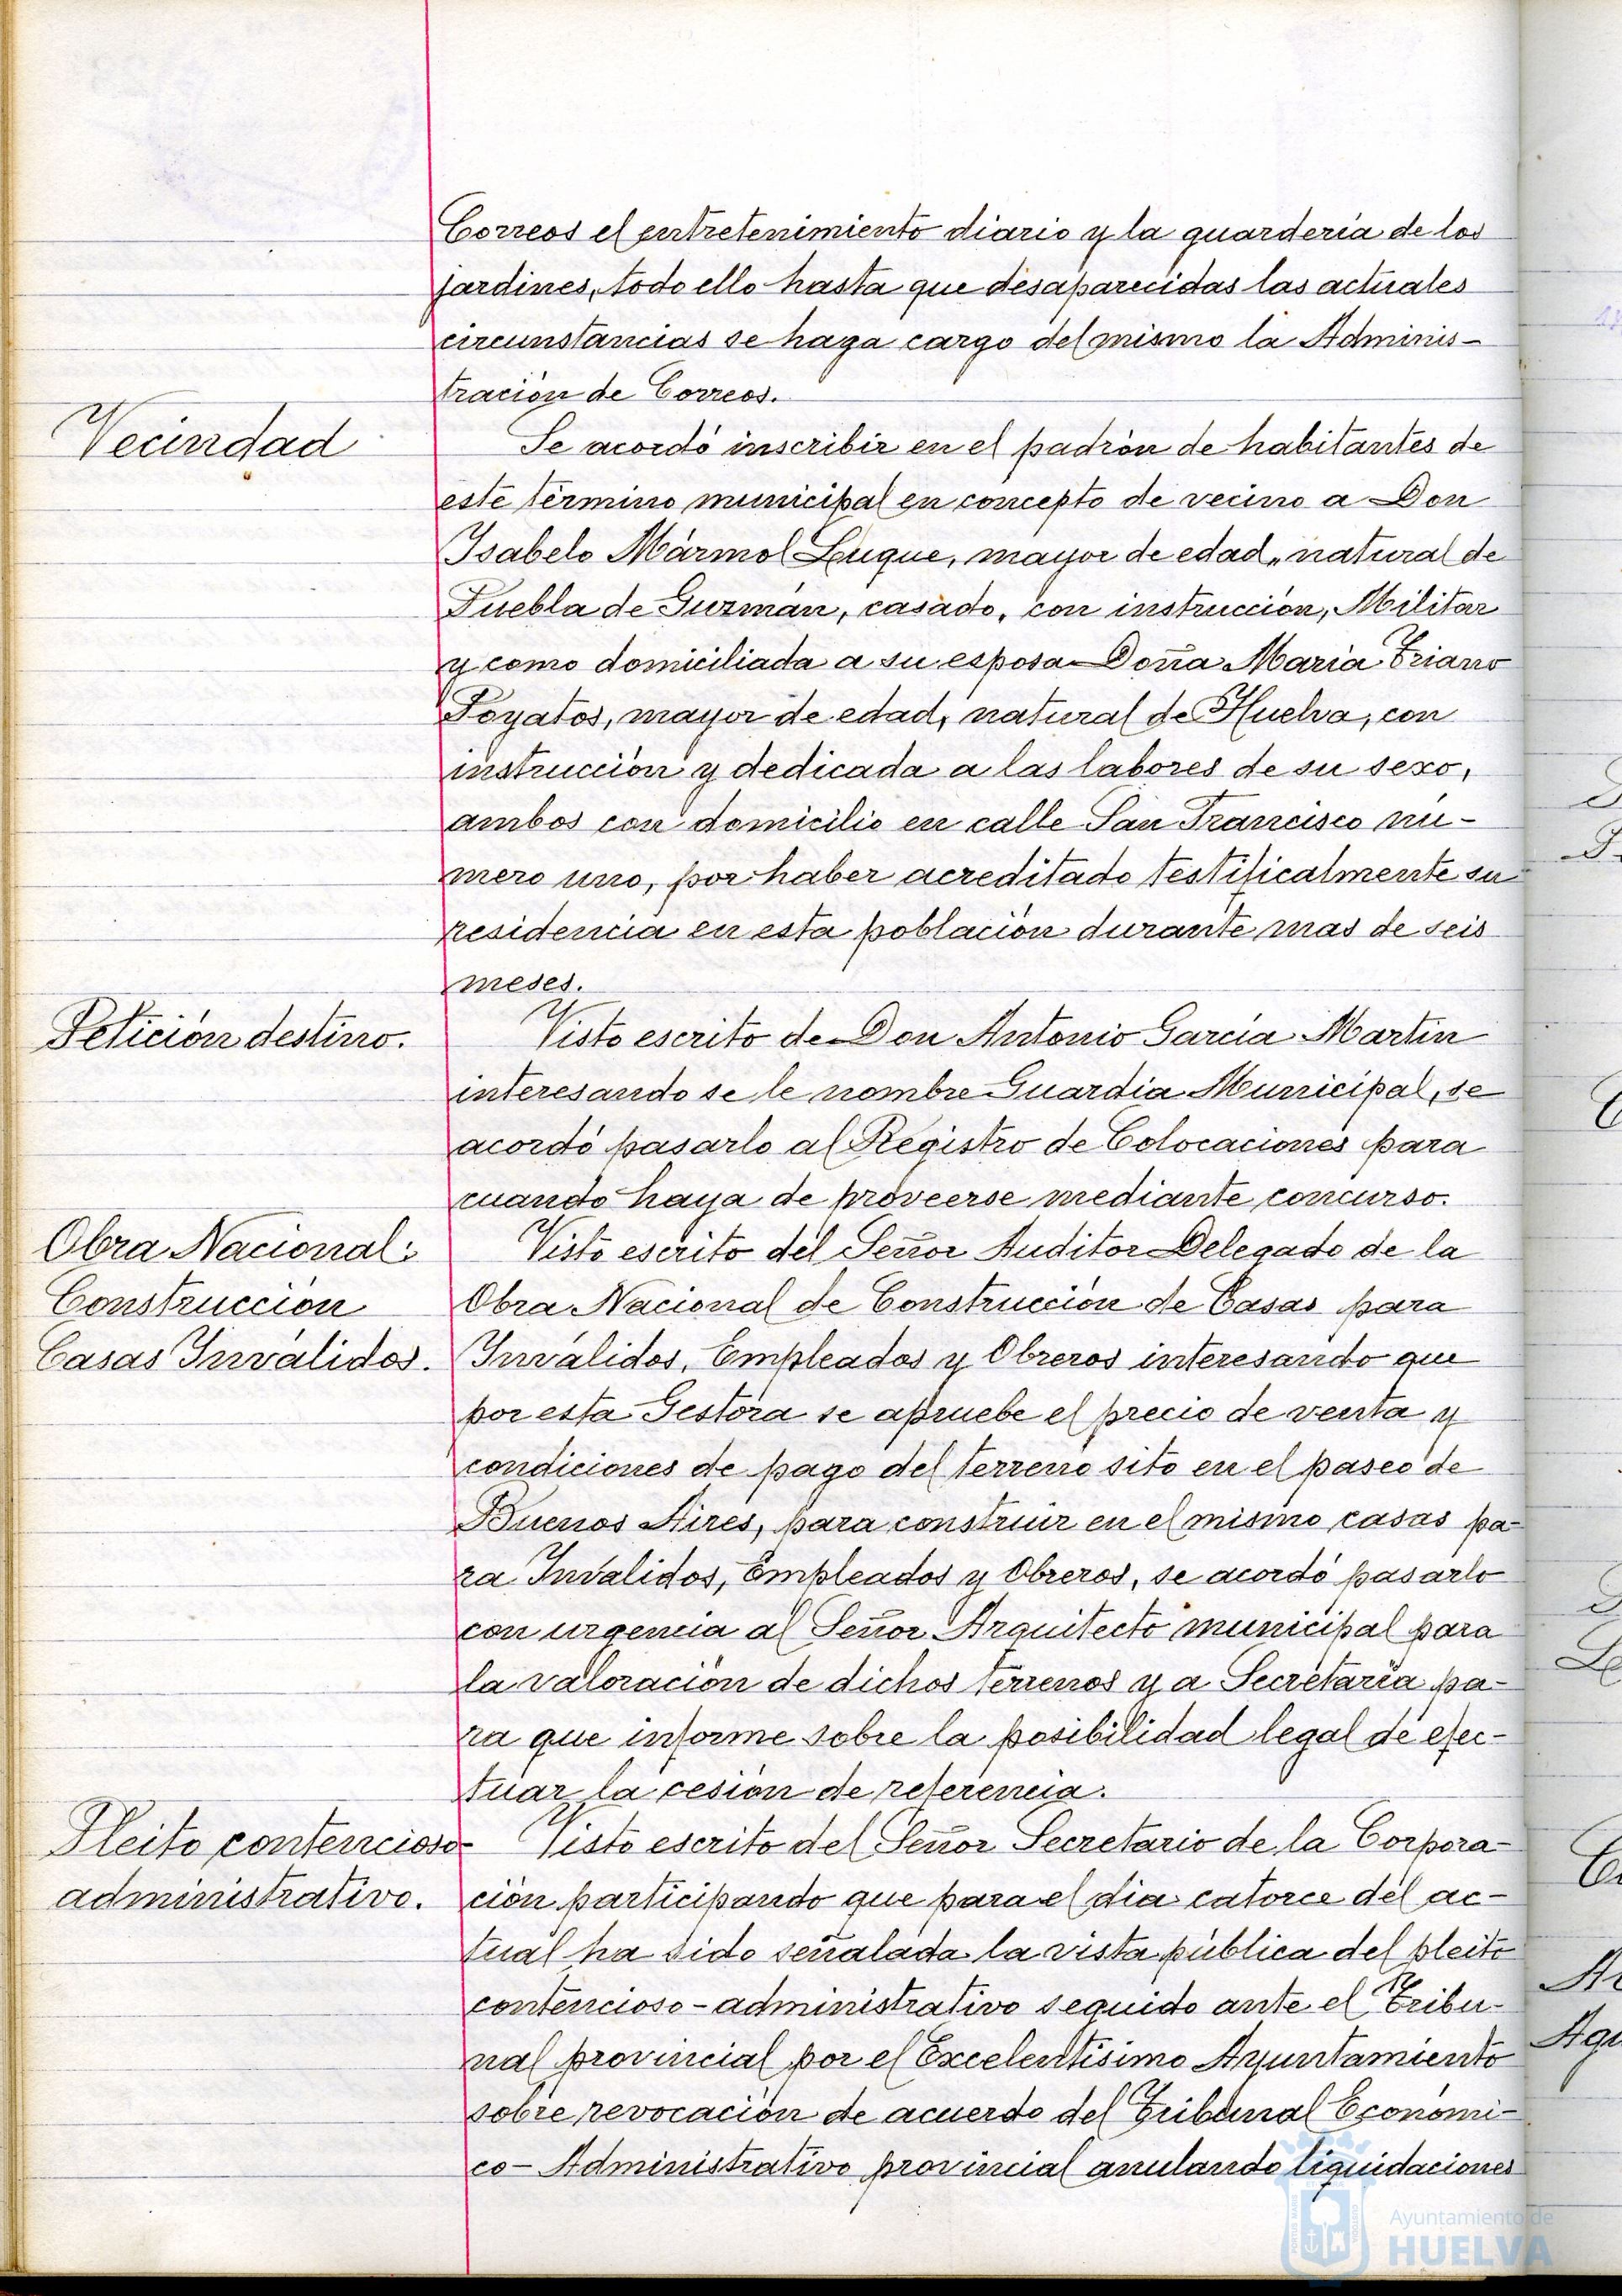 Correos el entretenimiento diario y la guardería de los
jardines, todo ello hasta que desaparecidas las actuales
circunstancias se haga cargo del mismo la Adminis-
tración de Correos.
Vecindad
Se acordó inscribir en el padrón de habitantes de
este término municipal en concepto de vecino a Don
Isabelo Mármol Luque, mayor de edad, natural de
Puebla de Guzmán, casado, con instrucción, Militar
y como domiciliada a su esposa Doña Maria Triano
Poyatos, mayor de edad, natural de Huelva, con
instrucción y dedicada a las labores de su sexo,
ambos con domicilio en calle San Francisco nú-
mero uno, por haber acreditado testificalmente su
residencia en esta población durante mas de seis
meses.
Petición destino.
Visto escrito de Don Antonio García Martín
interesando se le nombre Guardia Municipal, se
acordó pasarlo al Registro de Colocaciones para
cuando haya de proveerse mediante concurso.
Obra Nacional:
Construcción
Casas Inválidos.
Visto escrito del Señor Auditor Delegado de la
Obra Nacional de Construcción de Casas para
Inválidos, Empleados y Obreros interesando que
por esta Gestora se apruebe el precio de venta y
condiciones de pago del terreno sito en el paseo de
Buenos Aires, para construir en el mismo casas pa-
ra Invalidos, Empleados y Obreros, se acordó pasarlo
con urgencia al Señor Arquitecto municipal para
la valoración de dichos terrenos y a Secretaría pa-
ra que informe sobre la posibilidad legal de efec-
tuar la cesión de referencia.
Pleito contencioso-
administrativo.
Visto escrito del Señor Secretario de la Corpora-
ción participando que para el día catorce del ac-
tual ha sido señalada la vista pública del pleito
contencioso-administrativo seguido ante el Tribu-
nal provincial por el Excelentísimo Ayuntamiento
sobre revocación de acuerdo del Tribunal Económi-
co-Administrativo provincial anulando liquidaciones
Ayuntamiento de
HUELVA